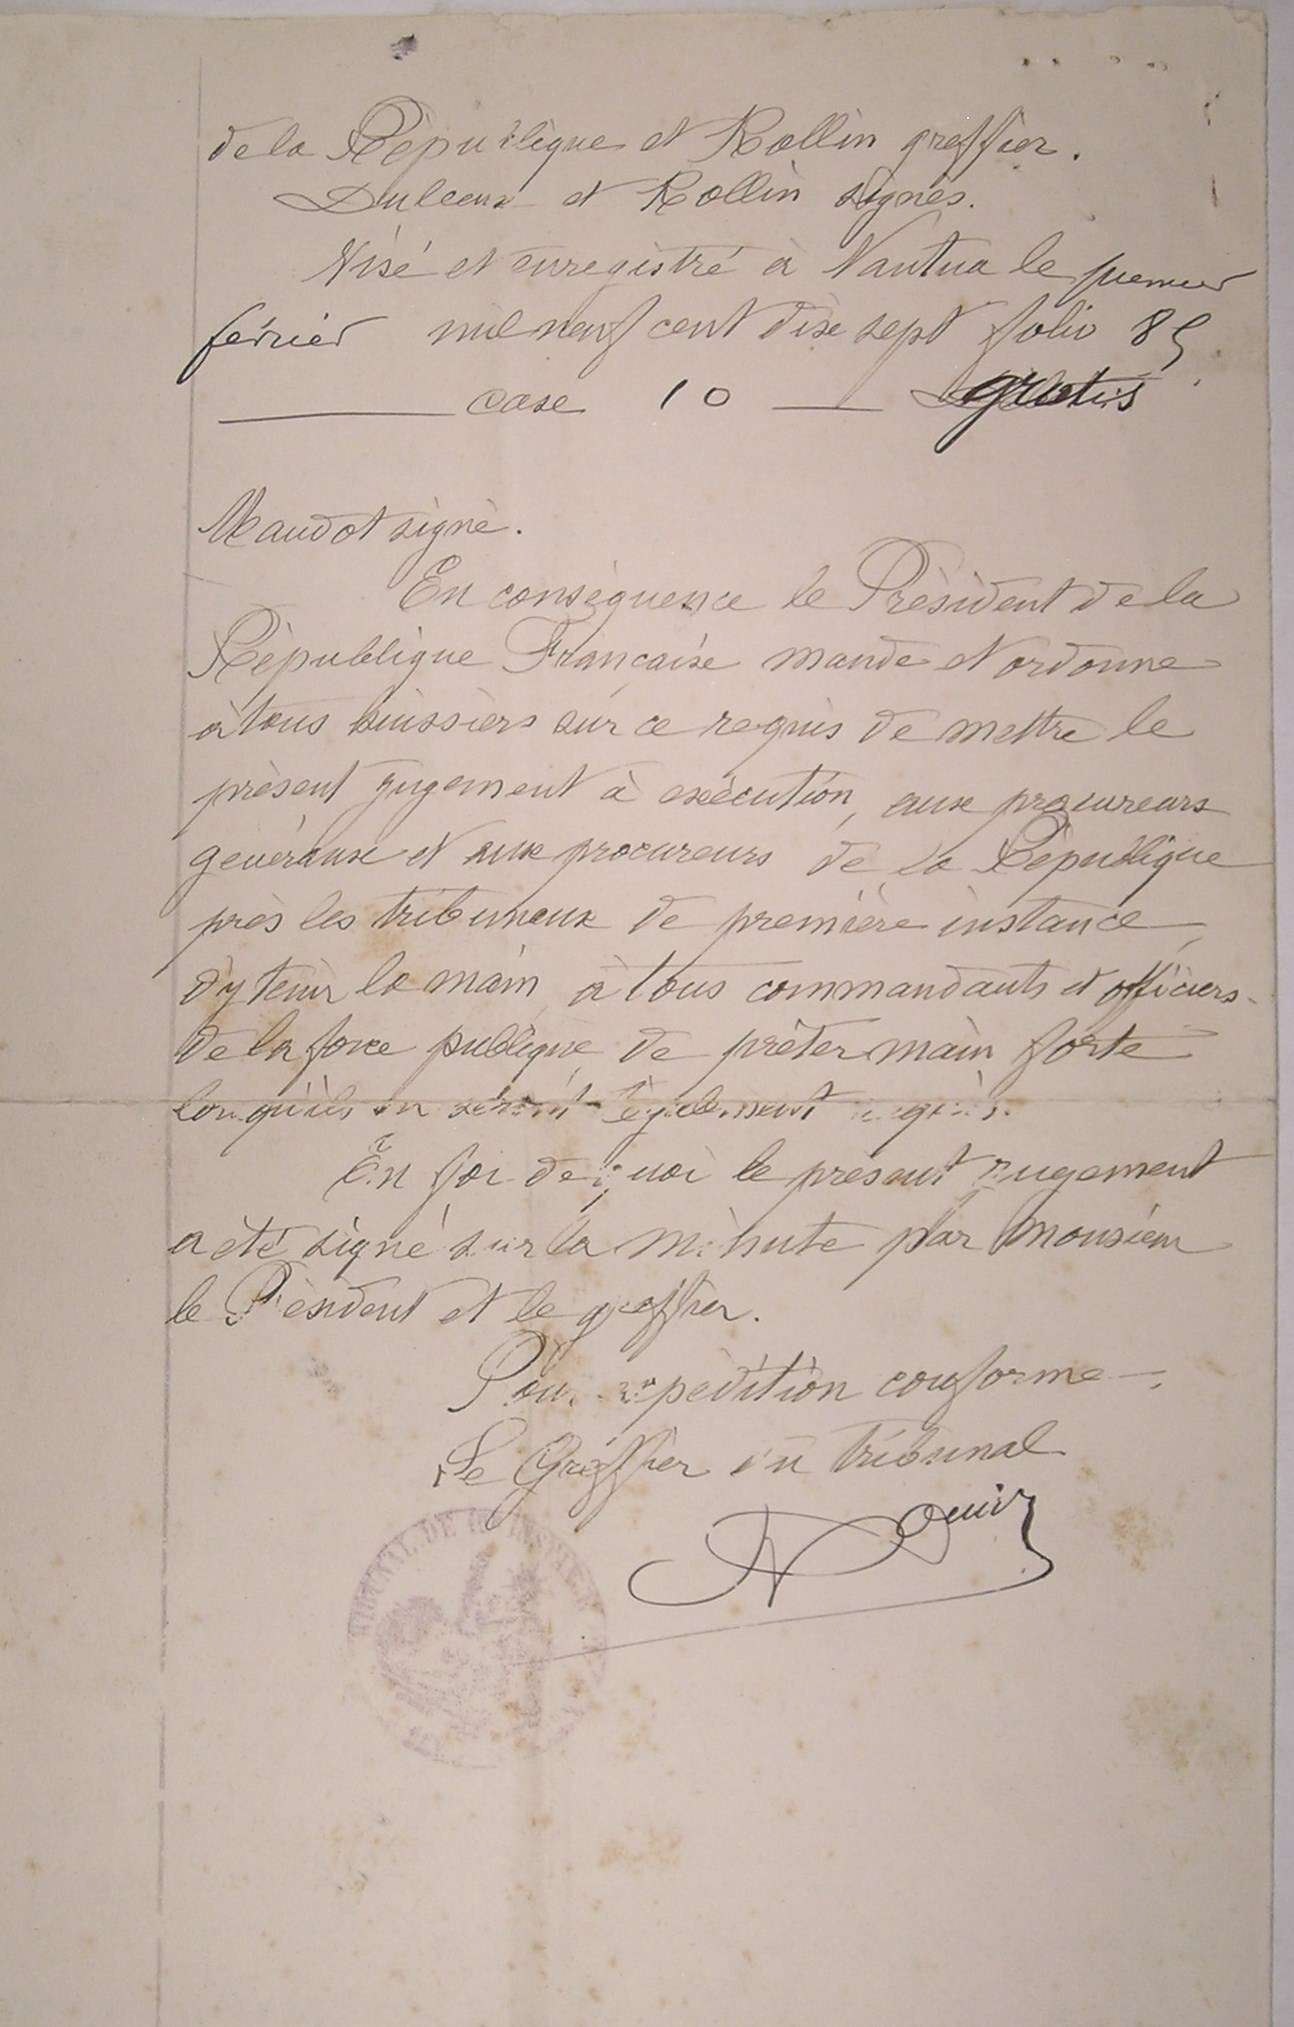 de la République et Rollin greffier.
et Rollin signés.
Visé et enregistré à Nantua le premier
février mil neuf cent dix sept folio 85
case 10 gratis
Maudot signé.
En conséquence le Président de la
République Française mande et ordonne
à tous huissiers sur ce requis de mettre le
présent jugement à exécution, aux procureurs
généraux et aux procureurs de la République
près les tribunaux de première instance
d'y tenir la main, à tous commandants et officiers
de la force publique de prêter main forte
lorsqu'ils en seront légalement requis.
En foi de quoi le présent jugement
a été signé sur la minute par Monsieur
le Président et le greffier.
Pour expédition conforme
Le Greffier du tribunal
TRIBUNAL DE 1RE INSTANCE